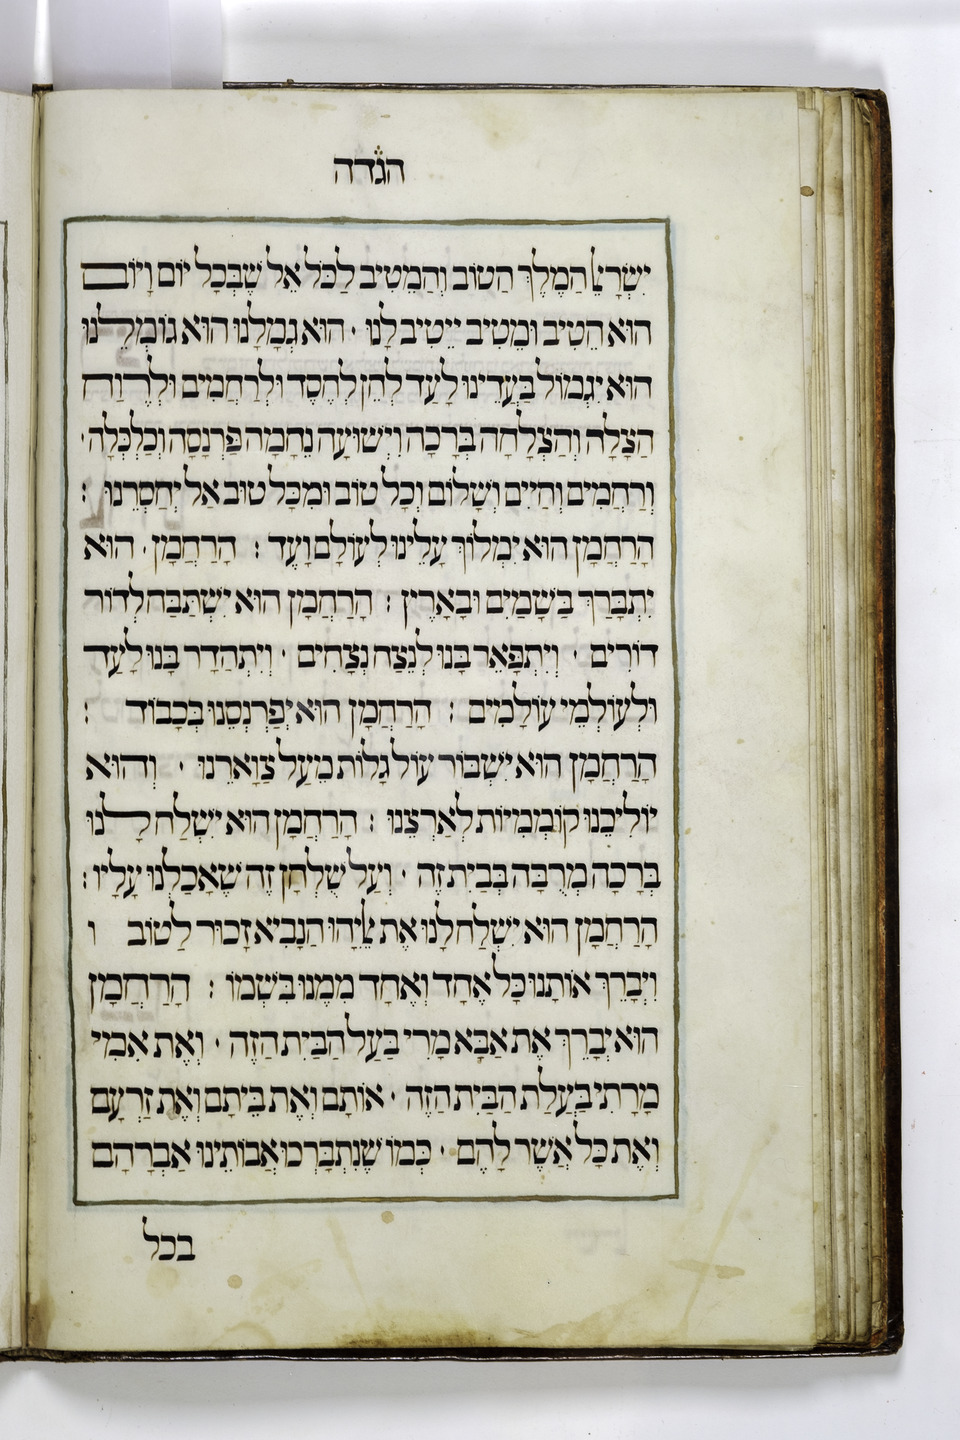 הגדה
יִשְׂרָאֵל הַמֶלֶךְ הַטוֹב וְהַמֵטִיב לַכֹּל אֵל שֶׁבְּכָל יוֹם וָיוֹם
הוּא הֵטִיב וּמֵטִיב יֵיטִיב לָנוּ · הוּא גְמָלָנוּ הוּא גוֹמְלֵנוּ
הוּא יִגְמוֹל בַּעֲדֵינוּ לָעַד לְחֵן לְחֶסֶד וּלְרַחֲמִים וּלְרֶוַח
הַצָלָה וְהַצְלָחָה בְּרָכָה וִישׁוּעָה נֶחָמָה פַּרְנָסָה וְכַלְכָּלָה ·
וְרַחֲמִים וְחַיִים וְשָׁלוֹם וְכָל טוֹב וּמִכָּל טוּב אַל יְחַסְרֵנוּ :
הָרַחֲמָן הוּא יִמְלוֹךְ עָלֵינוּ לְעוֹלָם וָעֶד : הָרַחֲמָן · הוּא
יִתְבָּרַךְ בַּשָׁמַיִם וּבָאָרֶיץ : הָרַחֲמָן הוּא יִשְׁתַּבַּח לְדוֹר
דוֹרִים · וְיִתְפָּאֵר בָּנוּ לְנֵצַח נְצָחִים · וְיִתְהַדָר בָּנוּ לָעַד
וּלְעוֹלְמֵי עוֹלָמִים : הָרַחֲמָן הוּא יְפַרְנְסֵנוּ בְּכָבוֹד :
הָרַחֲמָן הוּא יִשְׁבּוֹר עוֹל גָלוֹת מֵעַל צַוָארֵנוּ · וְהוּא
יוֹלִיכֵנוּ קוֹמְמִיוּת לְאַרְצֵנוּ : הָרַחֲמָן הוּא יִשְׁלַח לָנוּ
בְּרָכָה מְרֻבָּה בְּבַיִת זֶה · וְעַל שֻׁלְחָן זֶה שֶׁאָכַלְנוּ עָלָיו :
הָרַחֲמָן הוּא יִשְׁלַח לָנוּ אֶת אֵלִיָהוּ הַנָבִיא זָכוּר לַטוֹב ו
וִיבָרֵךְ אוֹתָנוּ כָּל אֶחָד וְאֶחָד מִמֶנוּ בִּשְׁמוֹ : הָרַחֲמָן
הוּא יְבָרֵךְ אֶת אַבָּא מָרִי בַּעַל הַבַּיִת הַזֶה · וְאֶת אִמִי
מָרָתִי בַּעֲלַת הַבַּיִת הַזֶה · אוֹתָם וְאֶת בֵּיתָם וְאֶת זַרְעָם
וְאֶת כָּל אֲשֶׁר לָהֶם · כְּמוֹ שֶׁנִתְבָּרְכוּ אֲבוֹתֵינוּ אַבְרָהָם
בכל